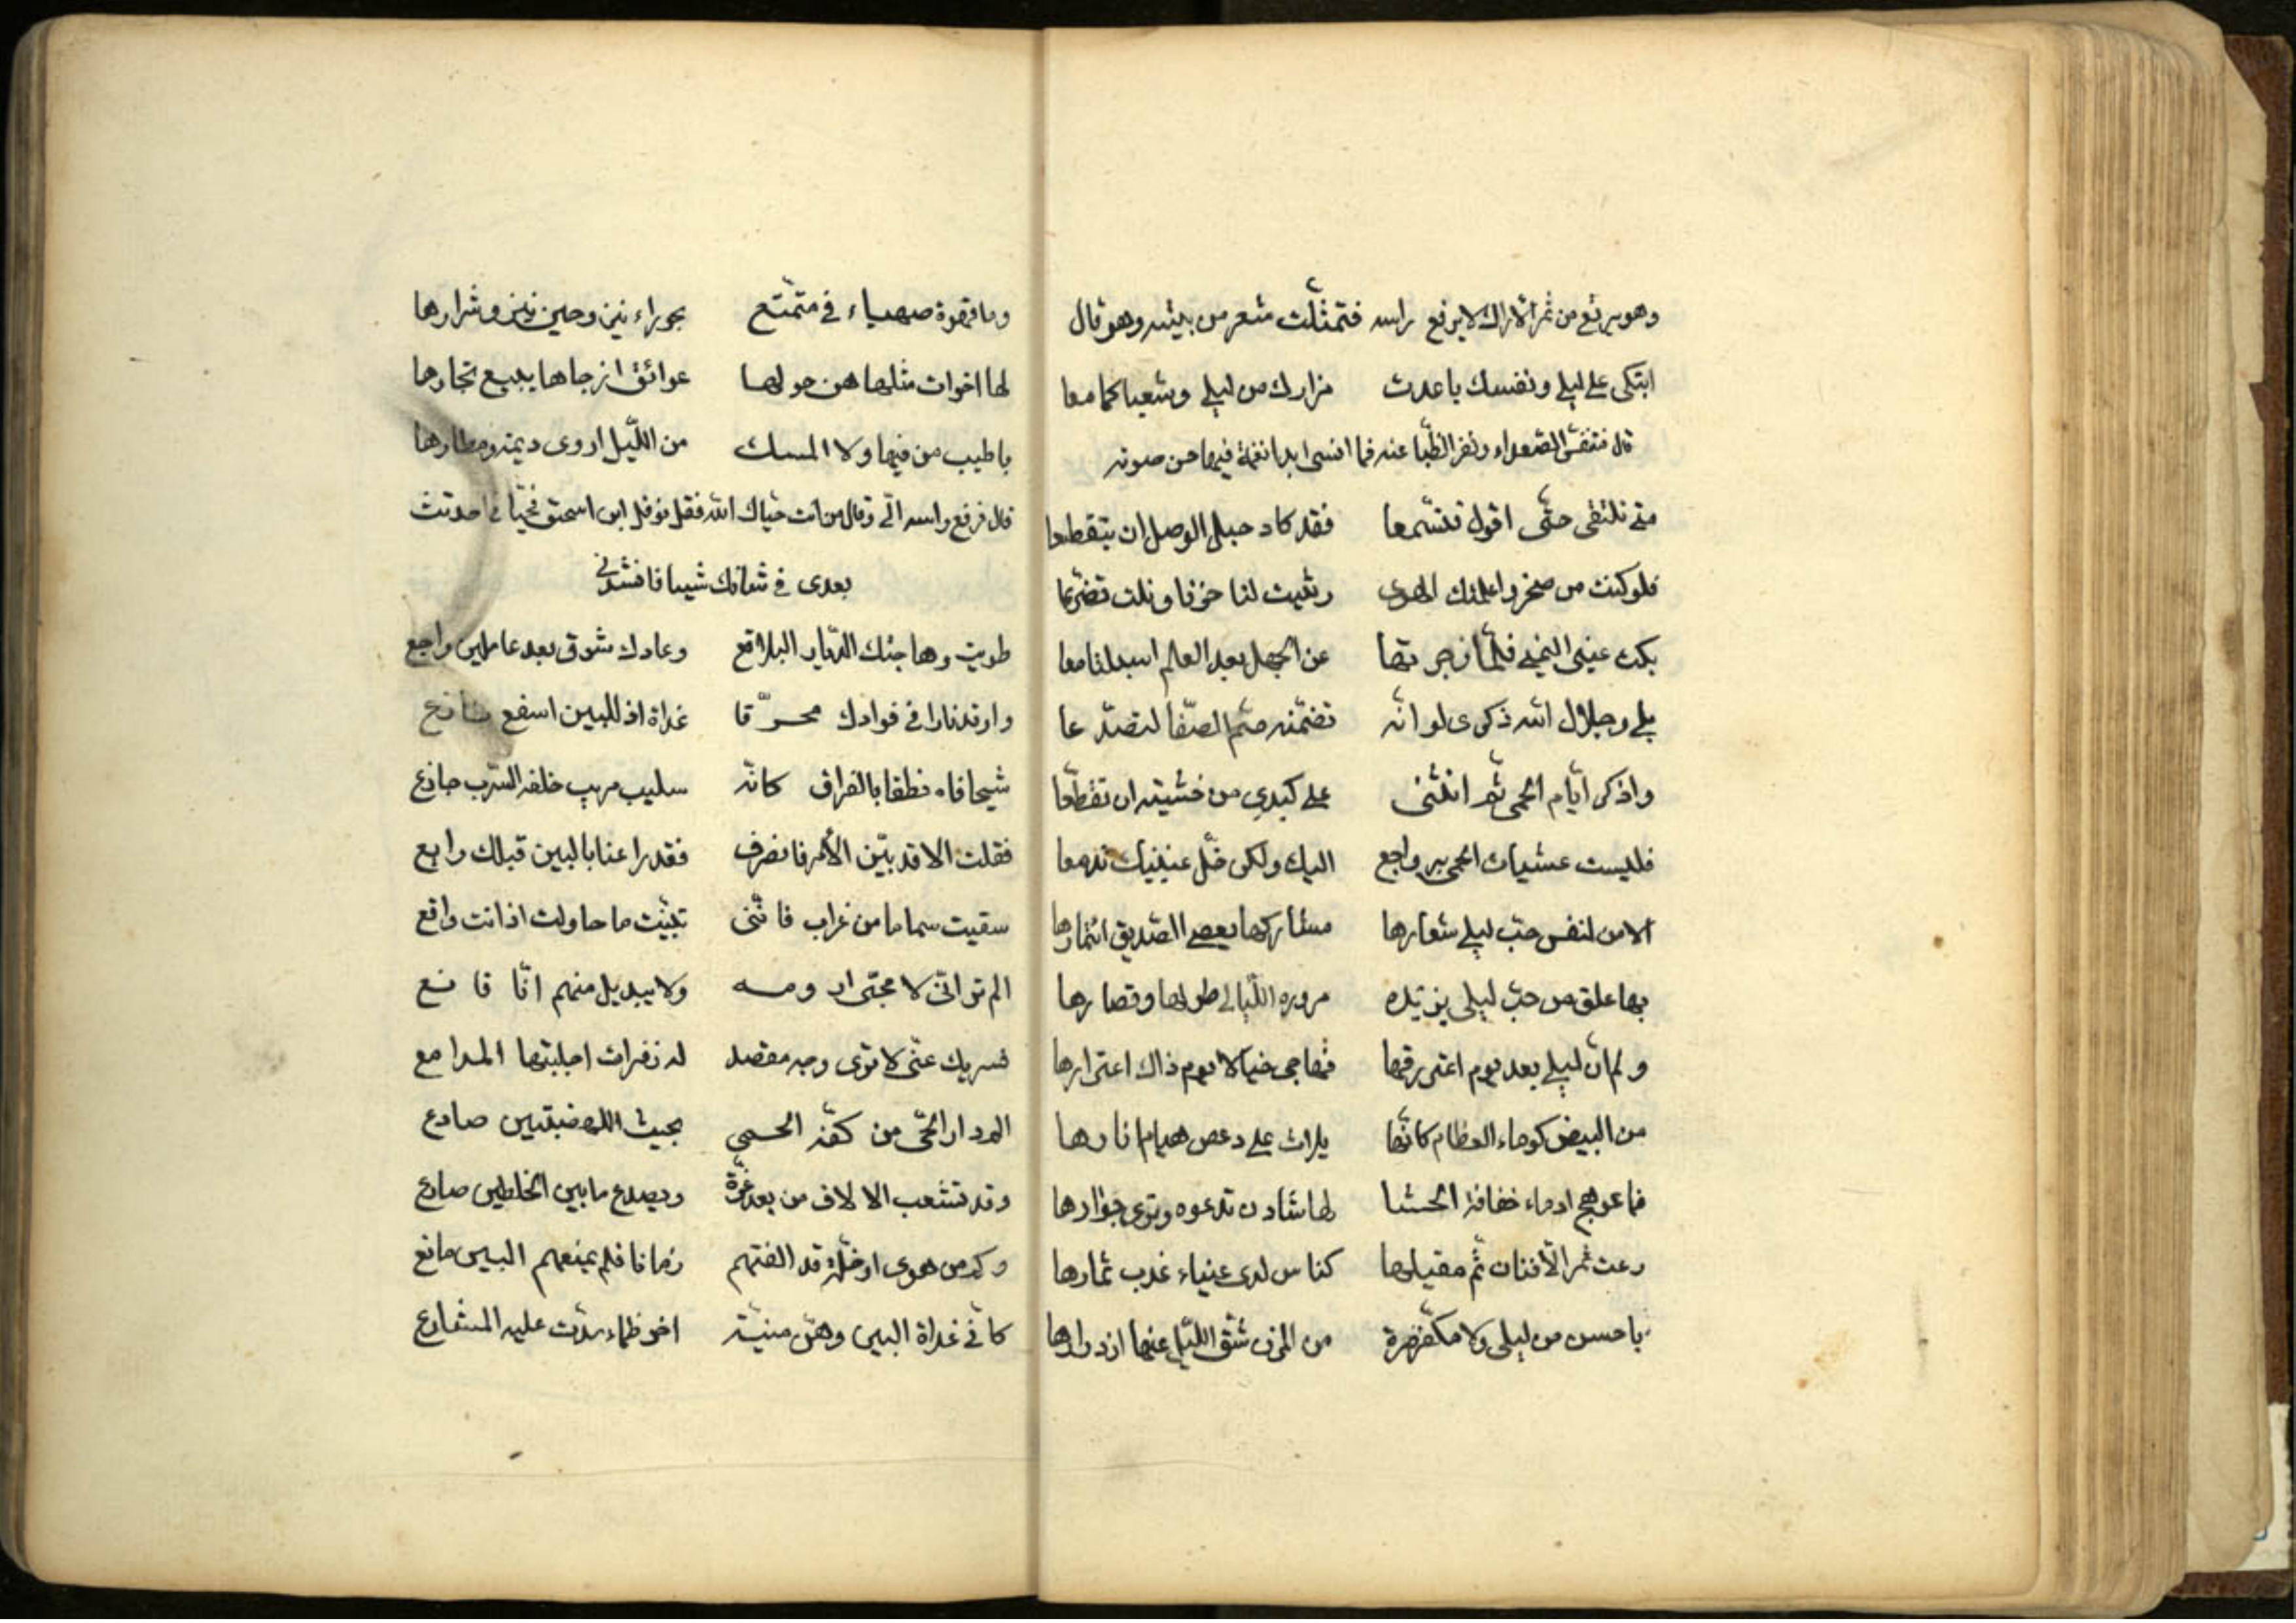 وهو يرتع من ثمر الاراك لا يرفع راسه فتمثلت بشعر من بيته وهو قال
ابتكى على ليلى ونفسك باعدت مزارك من ليلى وشعباكما معا
قال فتنفس الصعداء ونفر الظبا عنه فما انسى ابدا نغمة فيها حسن صوته
متى نلتقى حتى اقول فتسمعا فقد كاد حبل الوصل ان يتقطعا
فلو كنت من صخر واعلمك الهوى رثيت لنا حزنا ونلت تضرعا
بكت عينى اليمنى فلما زجرتها عن الجهل بعد العالم اسبلتا معا
بلى وجلال الله ذكرى لو انه تضمنه صم الصفا لتصدعا
واذكر ايام الحمى ثم انثنى على كبدى من خشيته ان تقطعا
فليست عشيات الحمى برواجع اليك ولكن خل عينيك تدمعا
الا من لنفس حب ليلى شعارها مشاركها بعصى الصديق ائتمارها
بها علق من حب ليلى يزيده مروره الليالى طولها وقصارها
ولم ار ليلى بعد يوم اعترقها فهاجى خيالا يوم ذاك اعترارها
من البيض كوماء العظام كانها يلاث على دعص هيام ازارها
فما عوهج ادماء خفاقة الحشا لها شادن تدعوه وترى جوارها
رعت ثمر الافنان ثم مقيلها كناس لدى عيناء عذب ثمارها
باحسن من ليلى ولا مكفهرة من المزن شق الليل عنها ازدرارها
وما قهوة صهباء فى متمتع بجوراء نين وحين نين وشرارها
لها اخوات مثلها هن حولها عوائق ازجاها يبيع تجارها
باطيب من فيها ولا المسك من الليل اروى ديمته ومطارها
قال فرفع راسه الى وقال من انت حياك الله فقل نوفل ابن اسحق فحيانى احدثت
بعدى فى شانك شيئا فانشدنى
طويت وهاجتك الديار البلاقع وعادك شوق بعد عاملين راجع
واوقد نارا فى فوادك محرقا غداة اذ للبين اسفع نازع
شحا فاه نطقا بالفراق كانه سليب مريب خلفه السرب جازع
فقلت الا قد بين الامر فانصرف فقد راعنا بالبين قبلك رابع
سقيت سماما من غراب فاننى تبينت ما حاولت اذ انت واقع
الم تر انى لا محب ار ومه ولا يبديل منهم انا قانع
فسريك عنى لا ترى وجه مقصد له زفرات اجلبتها المدامع
الم دار الحى من كفه الحمى بحيث الهضبتين صادع
وقد تشعب الالاف من بعد عزة ويصدع ما بين الخلطين صادع
وكم من هوى او خلة قد الفتهم زمانا فلم يمنعهم البين مانع
كانى غداة البين وهن منية اخو ظماء سدت عليه المشارع